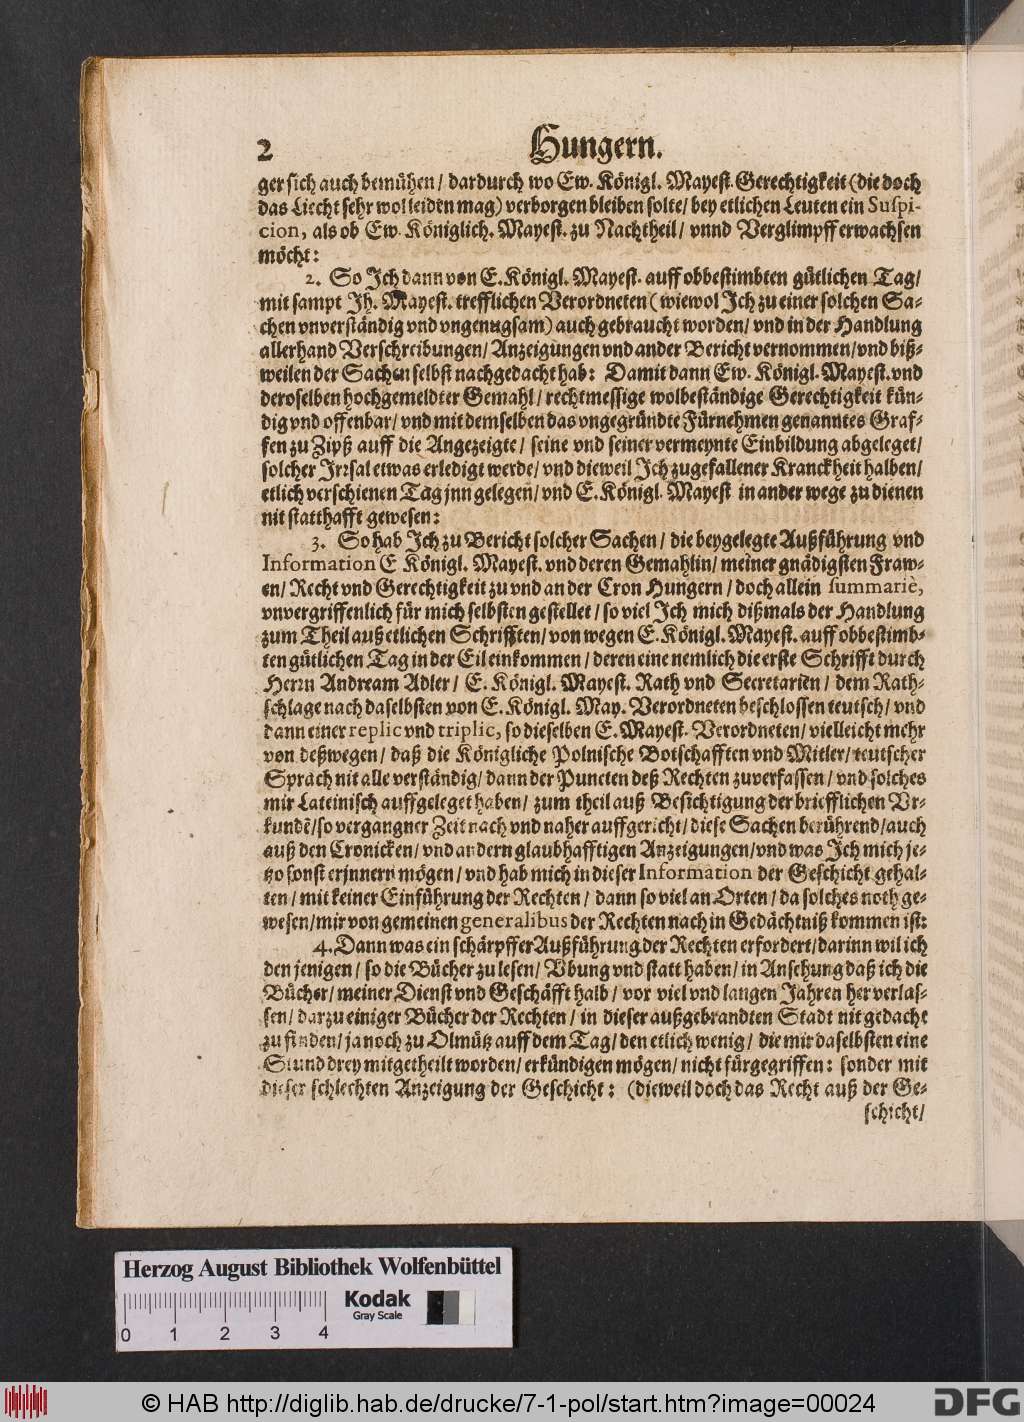 2 Hungern.
ger sich auch bemühen / dardurch wo Ew. Königl. Mayest. Gerechtigkeit (die doch
das Liecht sehr wol leiden mag) verborgen bleiben solte / bey etlichen Leuten ein Suspi-
cion, als ob Ew. Königlich. Mayest. zu Nachtheil / vnnd Verglimpff erwachsen
möcht:
2. So Ich dann von E. Königl. Mayest. auff obbestimbten gütlichen Tag /
mit sampt Ih. Mayest. trefflichen Verordneten (wiewol Ich zu einer solchen Sa-
chen vnverständig vnd vngenugsam) auch gebraucht worden / vnd in der Handlung
allerhand Verschreibungen / Anzeigungen vnd ander Bericht vernommen / vnd biß-
weilen der Sachen selbst nachgedacht hab: Damit dann Ew. Königl. Mayest. vnd
deroselben hochgemeldter Gemahl / rechtmessige wolbeständige Gerechtigkeit kün-
dig vnd offenbar / vnd mit demselben das vngegründte Fürnehmen genanntes Graf-
fen zu Zipß auff die Angezeigte / seine vnd seiner vermeynte Einbildung abgeleget /
solcher Irrsal etwas erledigt werde / vnd dieweil Ich zugefallener Kranckheit halben /
etlich verschienen Tag jnn gelegen / vnd E. Königl. Mayest in ander wege zu dienen
nit statthafft gewesen:
3. So hab Ich zu Bericht solcher Sachen / die beygelegte Außführung vnd
Information E Königl. Mayest. vnd deren Gemahlin / meiner gnädigsten Fraw-
en / Recht vnd Gerechtigkeit zu vnd an der Cron Hungern / doch allein summariè,
vnvergriffenlich für mich selbsten gestellet / so viel Ich mich dißmals der Handlung
zum Theil auß etlichen Schrifften / von wegen E. Königl. Mayest. auff obbestimb-
ten gütlichen Tag in der Eil einkommen / deren eine nemlich die erste Schrifft durch
Herrn Andream Adler / E. Königl. Mayest. Rath vnd Secretarien / dem Rath-
schlage nach daselbsten von E. Königl. May. Verordneten beschlossen teutsch / vnd
dann einer replic vnd triplic, so dieselben E. Mayest. Verordneten / vielleicht mehr
von deßwegen / daß die Königliche Polnische Botschafften vnd Mitler / teutscher
Sprach nit alle verständig / dann der Puncten deß Rechten zuverfassen / vnd solches
mir Lateinisch auffgeleget haben / zum theil auß Besichtigung der briefflichen Vr-
kundẽ / so vergangner Zeit nach vnd naher auffgericht / diese Sachen berührend / auch
auß den Cronicken / vnd andern glaubhafftigen Anzeigungen / vnd was Ich mich je-
tzo sonst erjnnern mögen / vnd hab mich in dieser Information der Geschicht gehal-
ten / mit keiner Einführung der Rechten / dann so viel an Orten / da solches noth ge-
wesen / mir von gemeinen generalibus der Rechten nach in Gedächtniß kommen ist:
4. Dann was ein schärpffer Außführung der Rechten erfordert / darinn wil ich
den jenigen / so die Bücher zu lesen / Vbung vnd statt haben / in Ansehung daß ich die
Bücher / meiner Dienst vnd Geschäfft halb / vor viel vnd langen Jahren her verlas-
sen / darzu einiger Bücher der Rechten / in dieser außgebrandten Stadt nit gedacht
zu finden / ja noch zu Olmütz auff dem Tag / den etlich wenig / die mir daselbsten eine
Stund drey mitgetheilt worden / erkündigen mögen / nicht fürgegriffen: sonder mit
dieser schlechten Anzeigung der Geschicht: (dieweil doch das Recht auß der Ge-
schicht /
Herzog August Bibliothek Wolfenbüttel
Kodak
Gray Scale
0 1 2 3 4
© HAB http://diglib.hab.de/drucke/7-1-pol/start.htm?image=00024
DFG